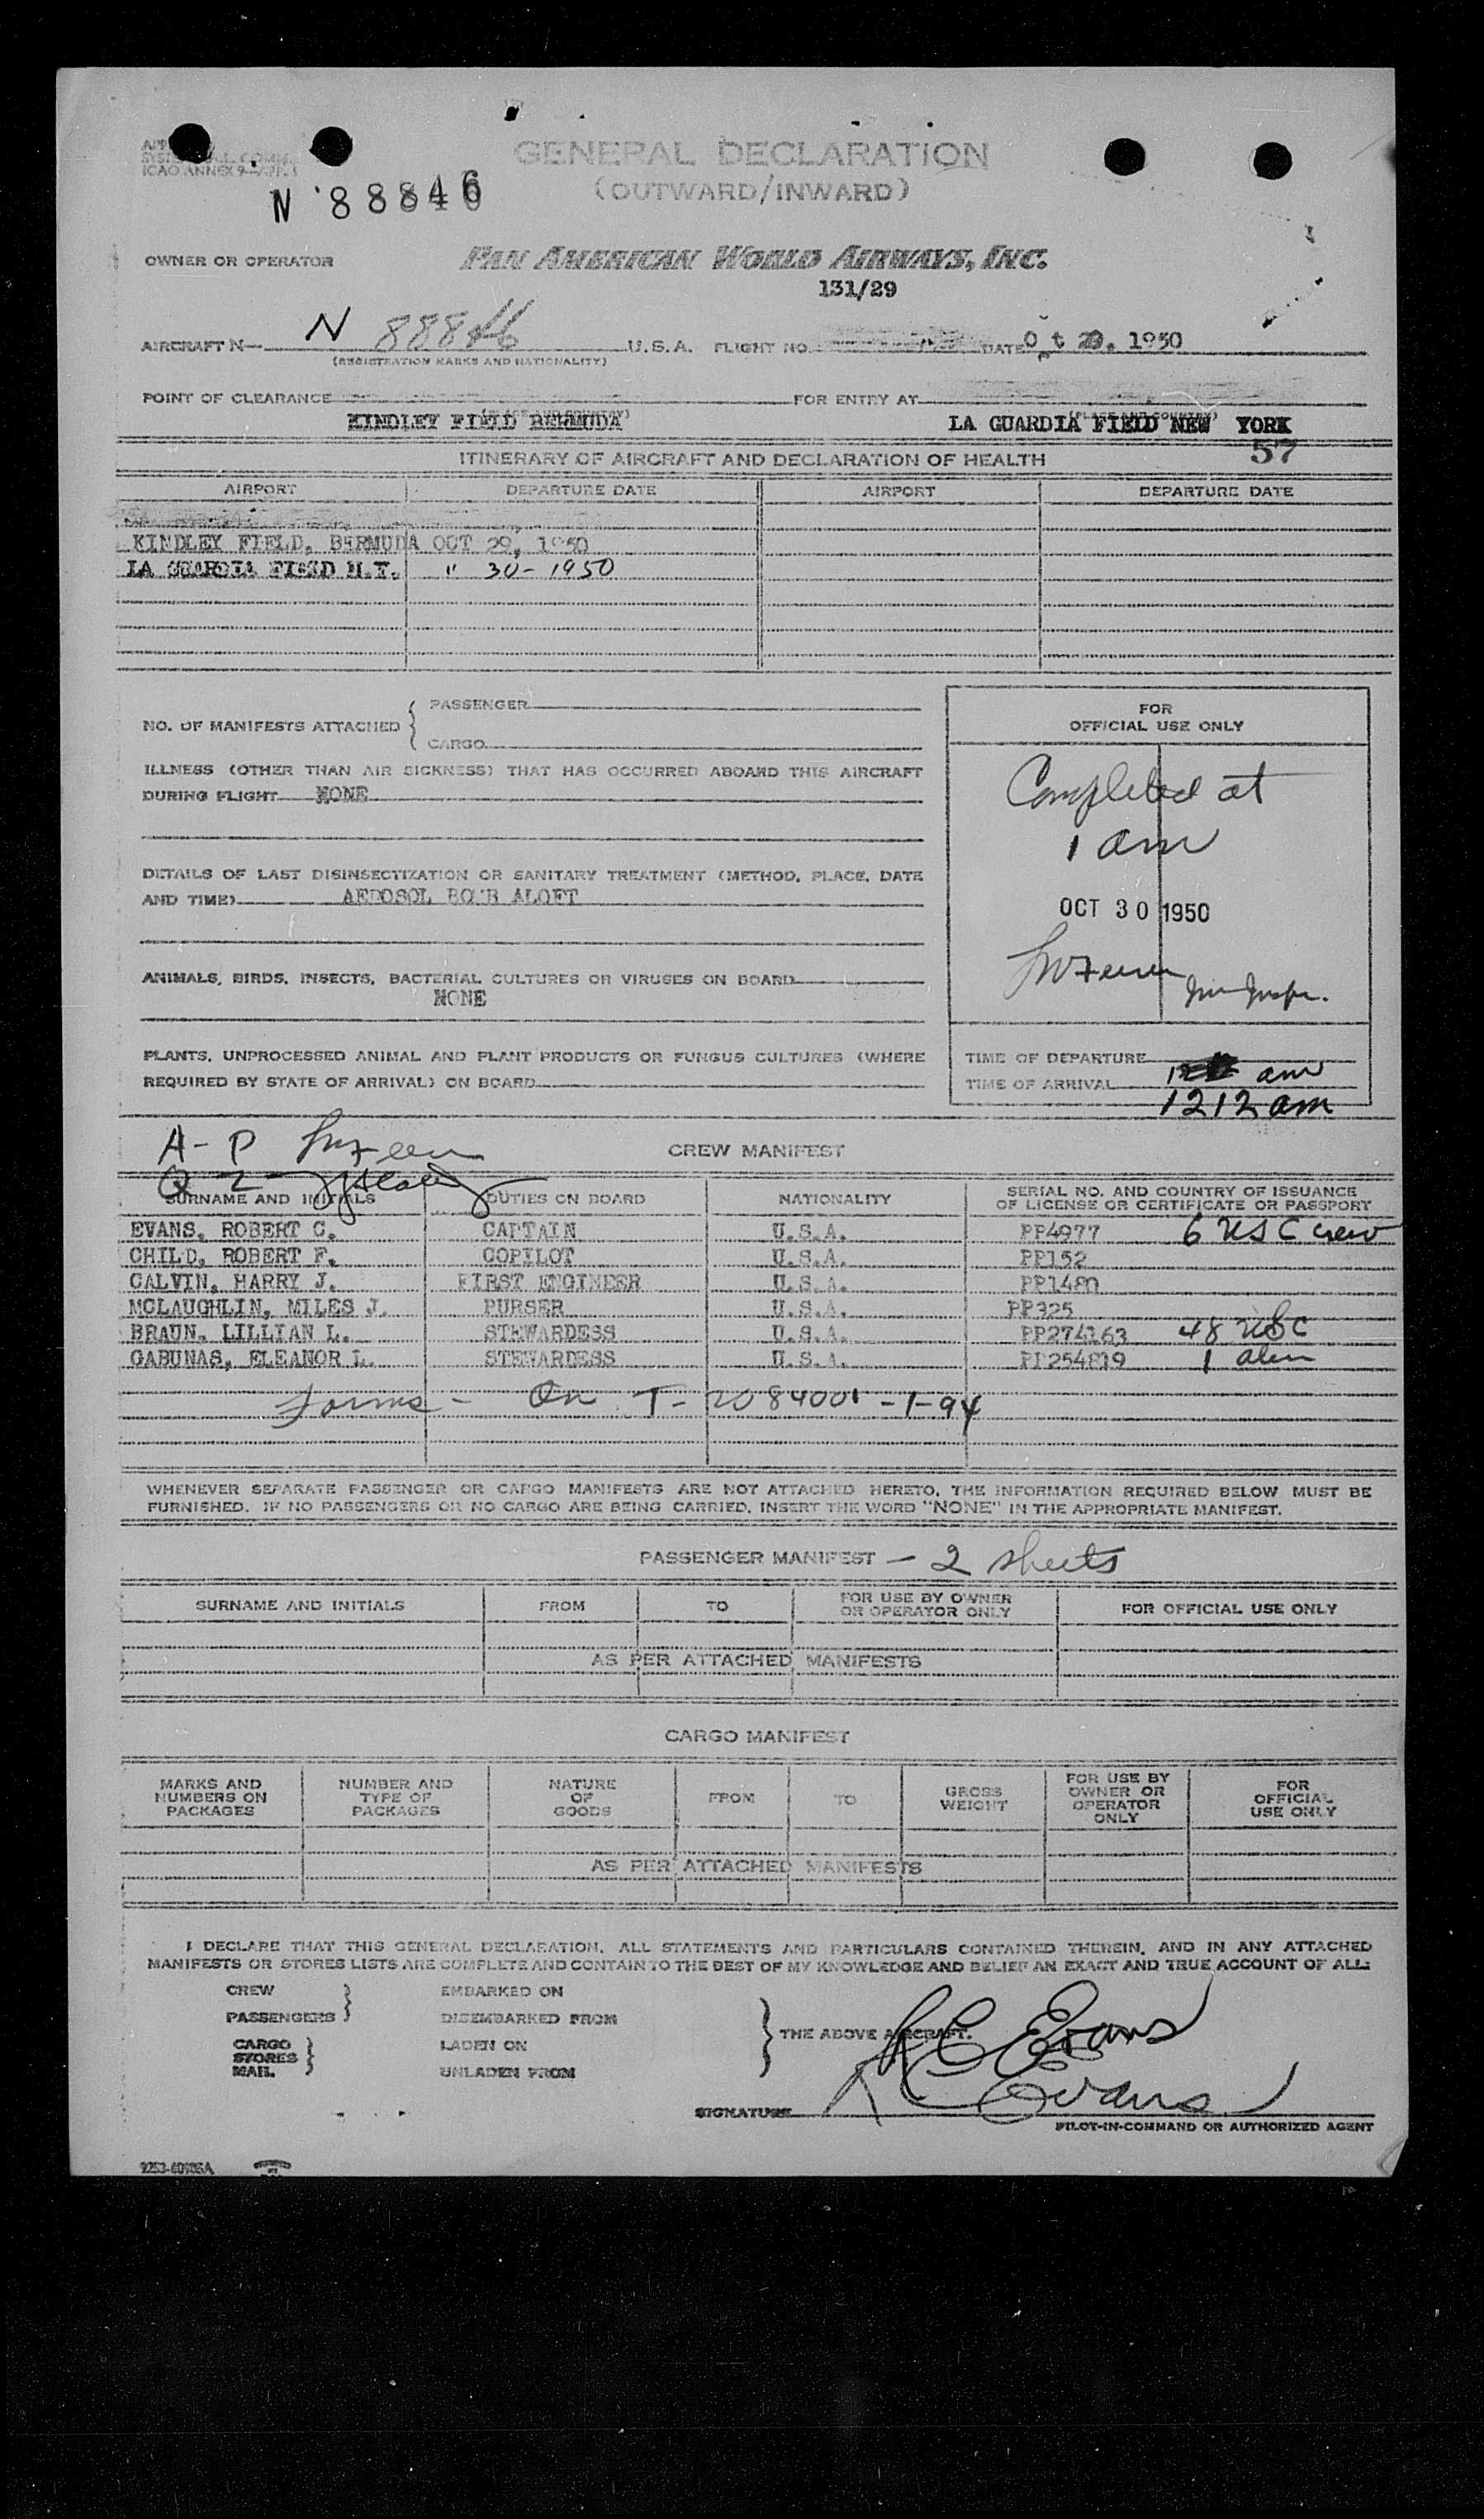 ICAO ANNEX 9
GENERAL DECLARATION
(OUTWARD/INWARD)
N 88846
OWNER OR OPERATOR PAN AMERICAN WORLD AIRWAYS, INC.
131/29
AIRCRAFT N— N 88846 U.S.A. FLIGHT NO. DATE O t 29, 1950
(REGISTRATION MARKS AND NATIONALITY)
POINT OF CLEARANCE FOR ENTRY AT
KINDLEY FIELD BERMUDA LA GUARDIA FIELD NEW YORK
57
ITINERARY OF AIRCRAFT AND DECLARATION OF HEALTH
AIRPORT DEPARTURE DATE AIRPORT DEPARTURE DATE
KINDLEY FIELD, BERMUDA OCT 29, 1950
LA GUARDIA FIELD N.Y. " 30-1950
NO. OF MANIFESTS ATTACHED { PASSENGER
CARGO
FOR
OFFICIAL USE ONLY
ILLNESS (OTHER THAN AIR SICKNESS) THAT HAS OCCURRED ABOARD THIS AIRCRAFT
DURING FLIGHT NONE
Completed at
1 am
DETAILS OF LAST DISINSECTIZATION OR SANITARY TREATMENT (METHOD, PLACE, DATE
AND TIME) AEROSOL BOMB ALOFT
OCT 30 1950
ANIMALS, BIRDS, INSECTS, BACTERIAL CULTURES OR VIRUSES ON BOARD
NONE
PLANTS, UNPROCESSED ANIMAL AND PLANT PRODUCTS OR FUNGUS CULTURES (WHERE
REQUIRED BY STATE OF ARRIVAL) ON BOARD
TIME OF DEPARTURE
TIME OF ARRIVAL am
1212 am
A-P
CREW MANIFEST
SURNAME AND INITIALS DUTIES ON BOARD NATIONALITY SERIAL NO. AND COUNTRY OF ISSUANCE
OF LICENSE OR CERTIFICATE OR PASSPORT
EVANS, ROBERT C. CAPTAIN U.S.A. PP4977 6 USC crew
CHILD, ROBERT F. COPILOT U.S.A. PP152
CALVIN, HARRY J. FIRST ENGINEER U.S.A. PP1480
MCLAUGHLIN, MILES J. PURSER U.S.A. PP325
BRAUN, LILLIAN L. STEWARDESS U.S.A. PP274163 48 USC
GABUNAS, ELEANOR L. STEWARDESS U.S.A. PP254819 1 alien
Forms - On T-2084001-1-94
WHENEVER SEPARATE PASSENGER OR CARGO MANIFESTS ARE NOT ATTACHED HERETO, THE INFORMATION REQUIRED BELOW MUST BE
FURNISHED. IF NO PASSENGERS OR NO CARGO ARE BEING CARRIED, INSERT THE WORD "NONE" IN THE APPROPRIATE MANIFEST.
PASSENGER MANIFEST - 2 sheets
SURNAME AND INITIALS FROM TO FOR USE BY OWNER
OR OPERATOR ONLY FOR OFFICIAL USE ONLY
AS PER ATTACHED MANIFESTS
CARGO MANIFEST
MARKS AND
NUMBERS ON
PACKAGES NUMBER AND
TYPE OF
PACKAGES NATURE
OF
GOODS FROM TO GROSS
WEIGHT FOR USE BY
OWNER OR
OPERATOR
ONLY FOR
OFFICIAL
USE ONLY
AS PER ATTACHED MANIFESTS
I DECLARE THAT THIS GENERAL DECLARATION, ALL STATEMENTS AND PARTICULARS CONTAINED THEREIN, AND IN ANY ATTACHED
MANIFESTS OR STORES LISTS ARE COMPLETE AND CONTAIN TO THE BEST OF MY KNOWLEDGE AND BELIEF AN EXACT AND TRUE ACCOUNT OF ALL:
CREW EMBARKED ON
PASSENGERS DISEMBARKED FROM
CARGO LADEN ON
STORES
MAIL UNLADEN FROM
THE ABOVE AIRCRAFT.
R C Evans
SIGNATURE R C Evans
PILOT-IN-COMMAND OR AUTHORIZED AGENT